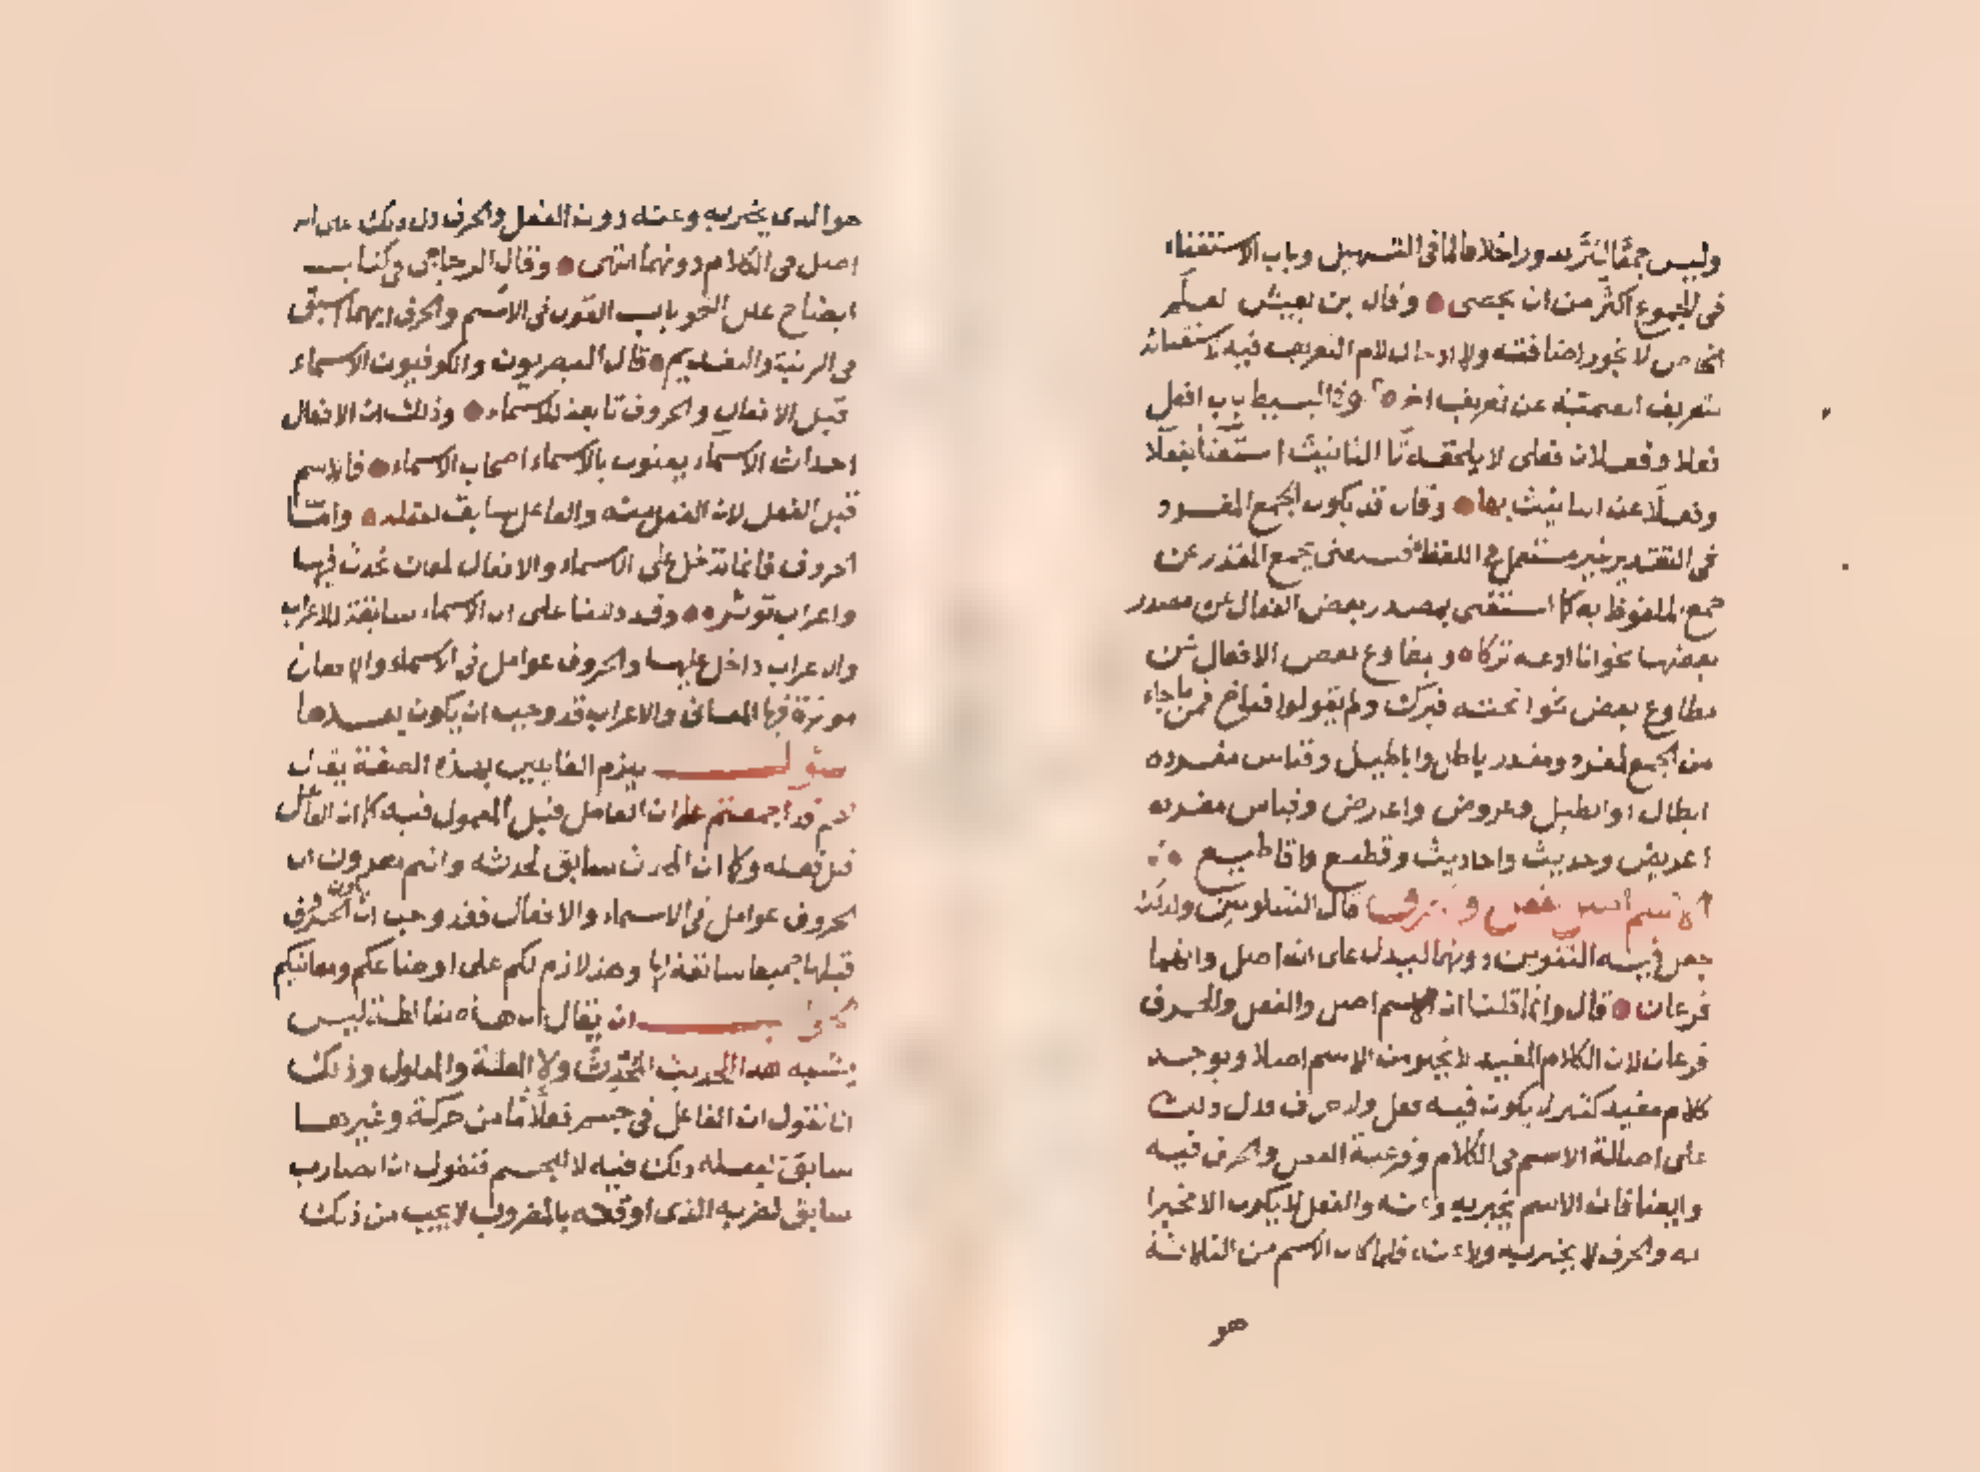 وليس جمعا لتردد وراخلافا لما فى التسهيل وباب الاستغناء
فى الجموع اكثر من ان يحصى وقال بن يعيش العلم
الخاص لا يجوز اضافته ولا ادخال لام التعريف فيه لاستغنائه
بتعريف العلمية عن تعريف اخر وفى البسيط باب افعل
فعلا وفعلان فعلى لا يلحقه تا التانيث استغنا بفعلا
وفعلا عن التانيث بها وقال قد يكون الجمع المفرد
فى التقدير غير مستعمل فى اللفظ فيستغنى بجمع المقدر عن
جمع الملفوظ به كما استغنى بمصدر بعض الافعال عن مصدر
بعضها نحو انا ادعه تركا وبمطاوع بعض الافعال عن
مطاوع بعض نحو انخته فبرك ولم يقولوا فناخ فمن ما جاء
من الجمع لمفرد ومقدر باطل واباطيل وقياس مفرده
ابطال او ابطيل وعروض واعاريض وقياس مفرده
اعريض وحديث واحاديث وقطيع واقاطيع
الاسم اصل للفعل والحرف قال الشلوبين ولذلك
جعل فيه التنوين دونهما ليدل على انه اصل وانهما
فرعان قال وانما قلنا ان الاسم اصل والفعل والحرف
فرعان لان الكلام المفيد لا يخلو من الاسم اصلا ويوجد
كلام مفيد كثير لا يكون فيه فعل ولا حرف فدل ذلك
على اصالة الاسم فى الكلام وفرعية الفعل والحرف فيه
وايضا فان الاسم يخبر به وعنه والفعل لا يكون الا مخبرا
به والحرف لا يخبر به ولا عنه فلما كان الاسم من الثلاثة
هو
هو الذى يخبر به وعنه دون الفعل والحرف دل ذلك على انه
اصل فى الكلام دونهما انتهى وقال الزجاجى فى كتاب
ايضاح علل النحو باب القول فى الاسم والحرف ايهما اسبق
فى الرتبة والتقديم قال البصريون والكوفيون الاسماء
قبل الافعال والحروف تابعة للاسماء وذلك ان الافعال
احداث الاسماء يعنون بالاسماء اصحاب الاسماء فالاسم
قبل الفعل لان الفعل منه والفاعل سابق لفعله واما
الحروف فانما تدخل على الاسماء والافعال لمعان تحدث فيها
واعراب توثره وقد دللنا على ان الاسماء سابقة للاعراب
والاعراب داخل عليها والحروف عوامل فى الاسماء والافعال
موثرة فيها المعانى والاعراب قد وجب ان يكون بعدها
سؤال يلزم القايلين بهذه الصفة يقال
لهم قد اجمعتم على ان العامل قبل المعمول فيه كما ان الفاعل
قبل فعله وكما ان المحدث سابق لحدثه وانتم تقرون ان
الحروف عوامل فى الاسماء والافعال فقد وجب ان تكون الحروف
قبلها جميعا سابقة لها وهذا لازم لكم على اوضاعكم ومعانيكم
الجواب ان يقال ان هذه مغالطة ليس
يشبه هذا الحديث المحدث ولا العلة والمعلول وذلك
انا نقول ان الفاعل فى جسم فعلا ما من حركة وغيرها
سابق لفعله ذلك فيه لا للجسم فنقول ان الضارب
سابق لضربه الذى اوقعه بالمضروب لا يجب من ذلك